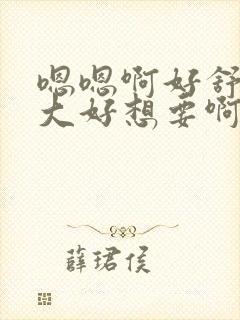 嗯嗯啊好舒
大好想要啊
薛珺侯